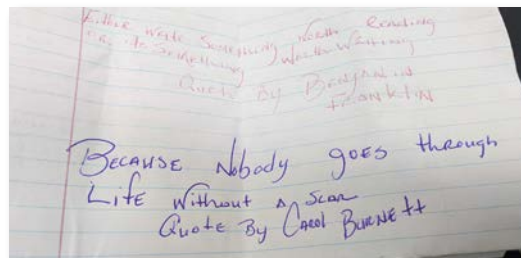 Either write Something worth Reading
or do Something Worth Writing
Quote By Benjamin
Franklin
Because Nobody goes through
Life without A Scar
Quote By Carol Burnett